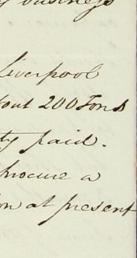 business
Liverpool
out 200 Tons
ty paid.
procure a
on at present